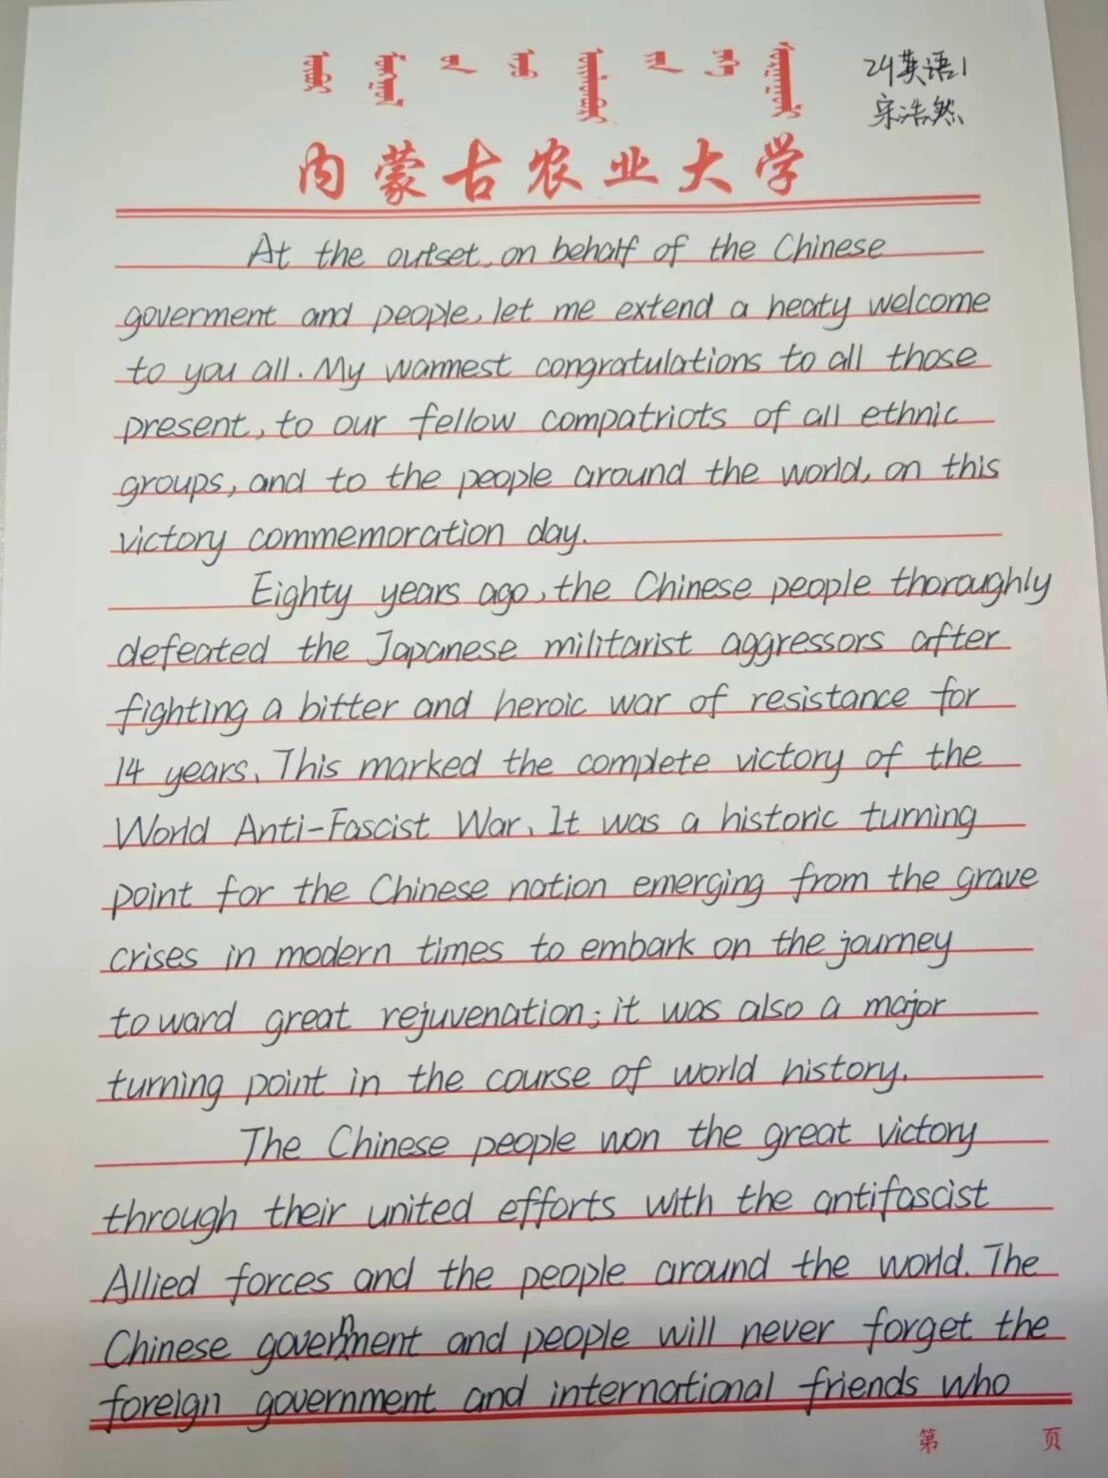 24英语1
宋浩然
内蒙古农业大学
At the outset, on behalf of the Chinese
goverment and people, let me extend a heaty welcome
to you all. My warmest congratulations to all those
present, to our fellow compatriots of all ethnic
groups, and to the people around the world, on this
victory commemoration day.
Eighty years ago, the Chinese people thoroughly
defeated the Japanese militarist aggressors after
fighting a bitter and heroic war of resistance for
14 years. This marked the complete victory of the
World Anti-Fascist War. It was a historic turning
point for the Chinese nation emerging from the grave
crises in modern times to embark on the journey
toward great rejuvenation; it was also a major
turning point in the course of world history.
The Chinese people won the great victory
through their united efforts with the antifascist
Allied forces and the people around the world. The
Chinese government and people will never forget the
foreign government and international friends who
第 页